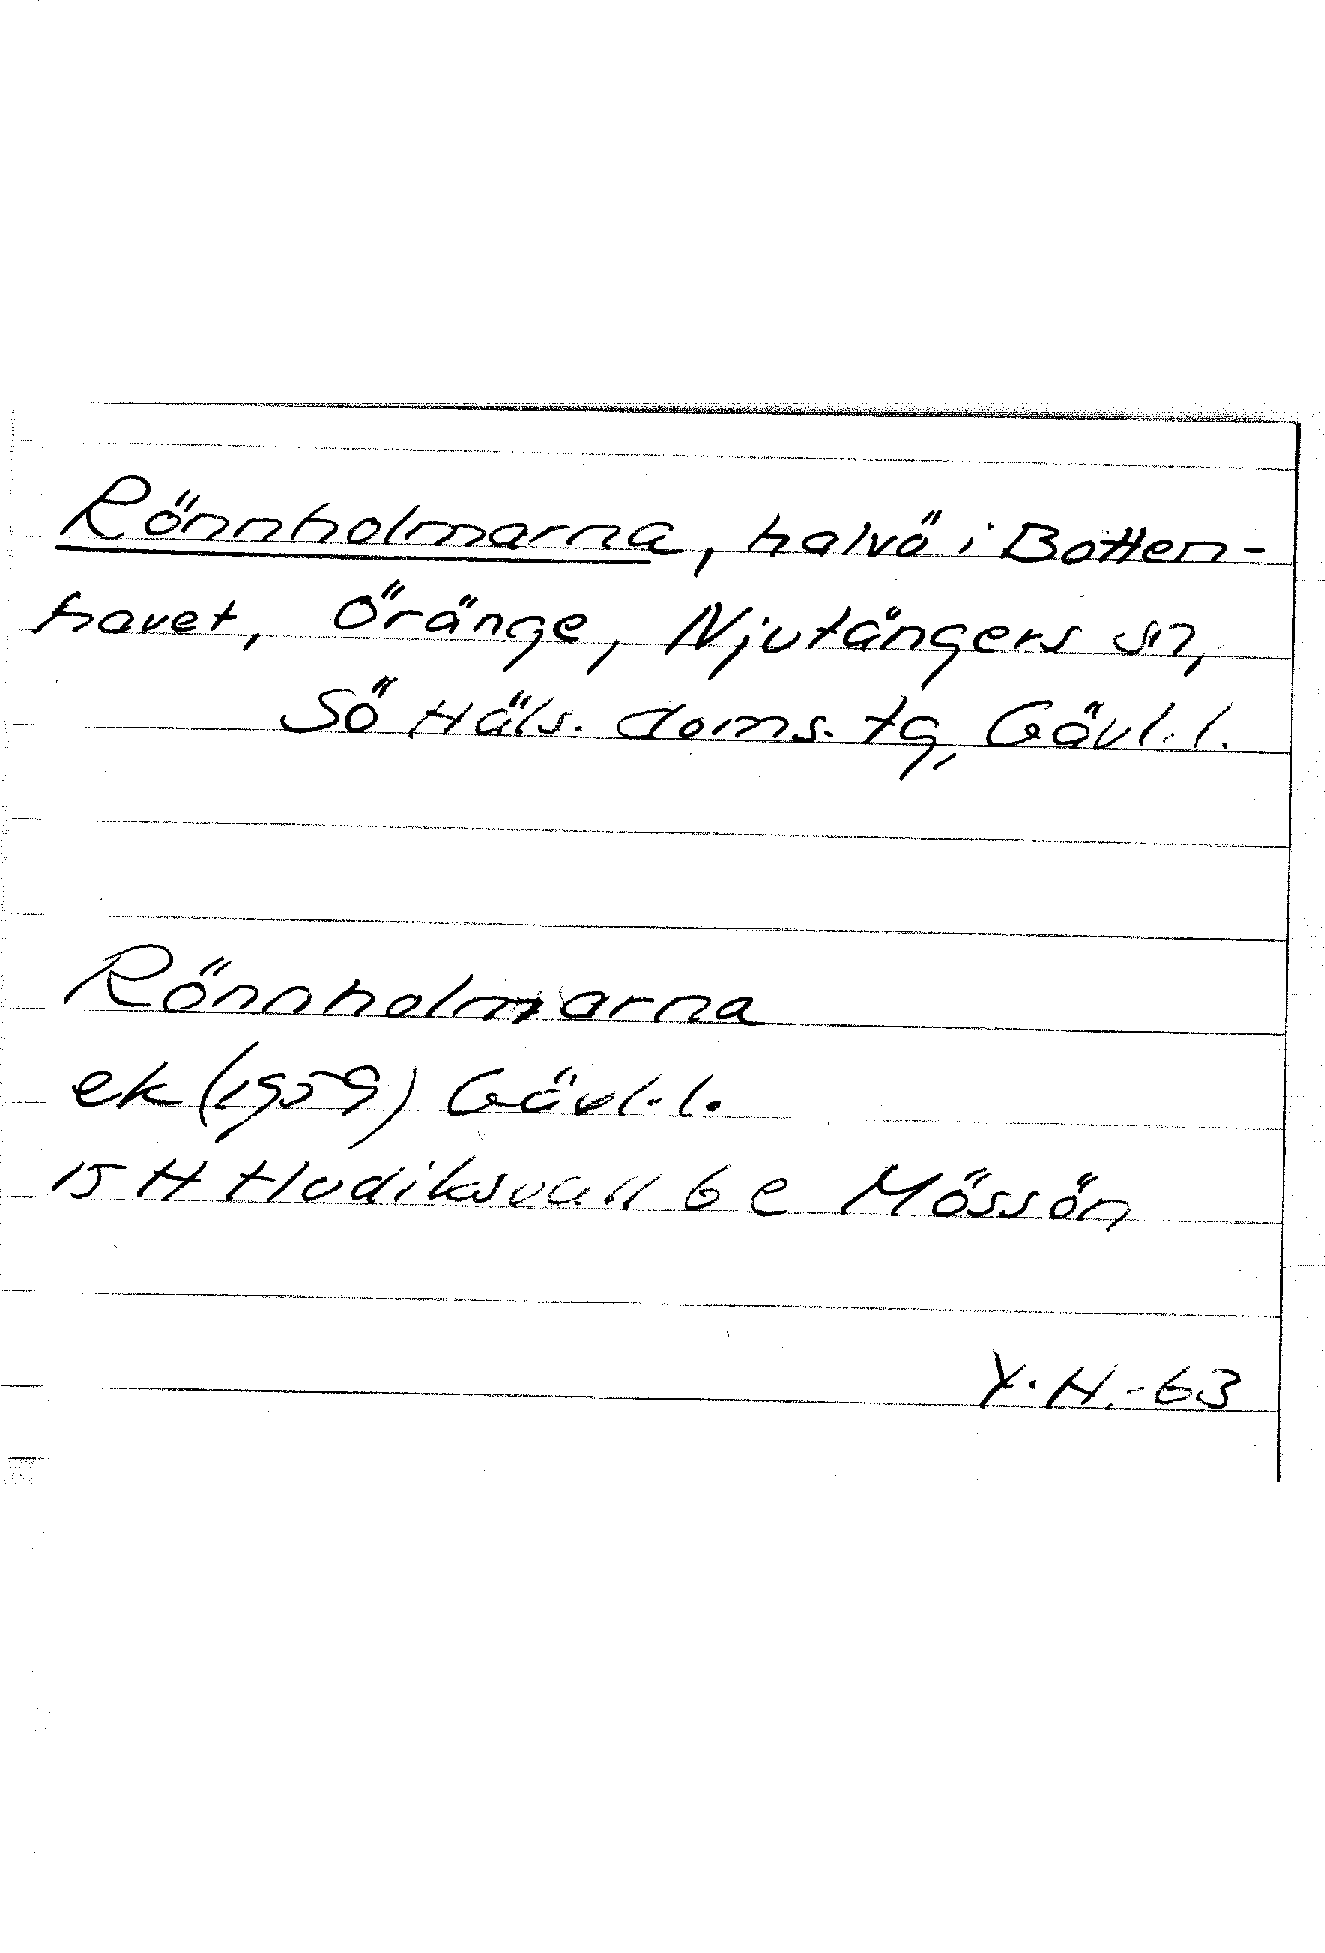 Rönnholmarna, halvö i Botten-
havet, Öränge, Njutångers sn,
Sö Häls. doms. tg, Gävl. l.
Rönnholmarna
ek (1959) Gävl. l.
15 H Hudiksvall 6 e Mössön
Y. H. -63